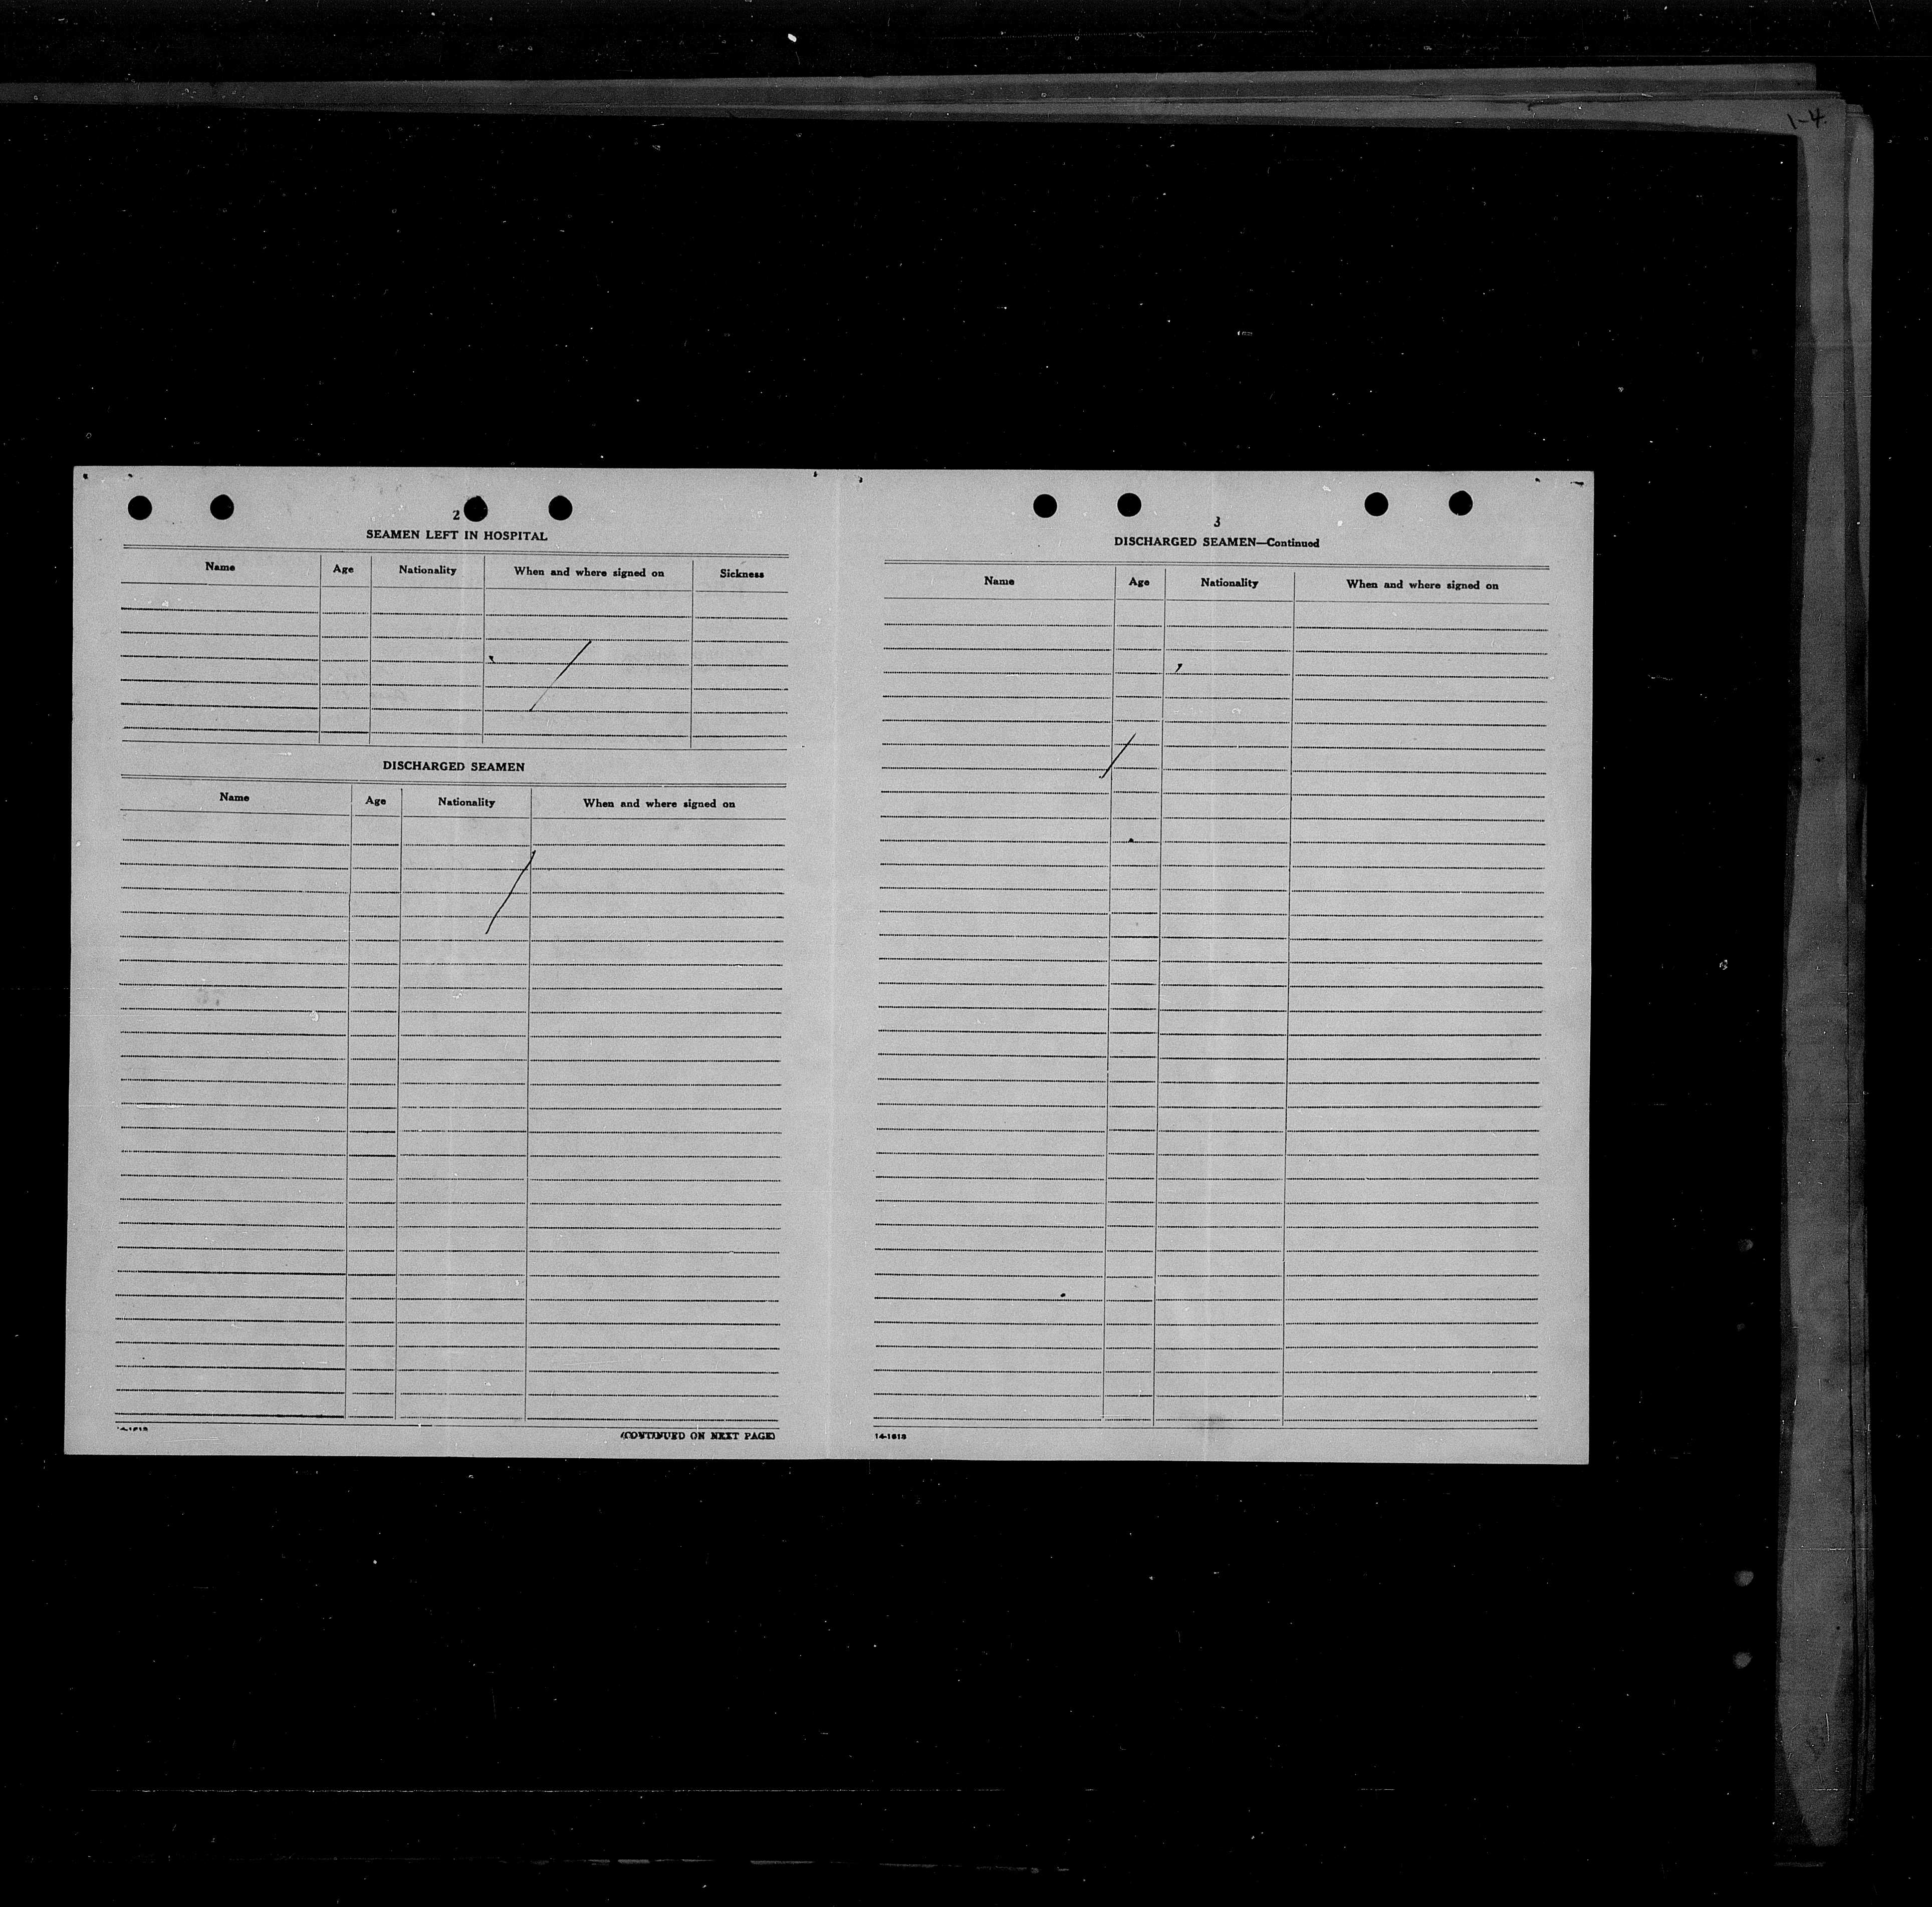 1-4.
2
SEAMEN LEFT IN HOSPITAL
Name Age Nationality When and where signed on Sickness
DISCHARGED SEAMEN
Name Age Nationality When and where signed on
(CONTINUED ON NEXT PAGE)
3
DISCHARGED SEAMEN—Continued
Name Age Nationality When and where signed on
14-1613